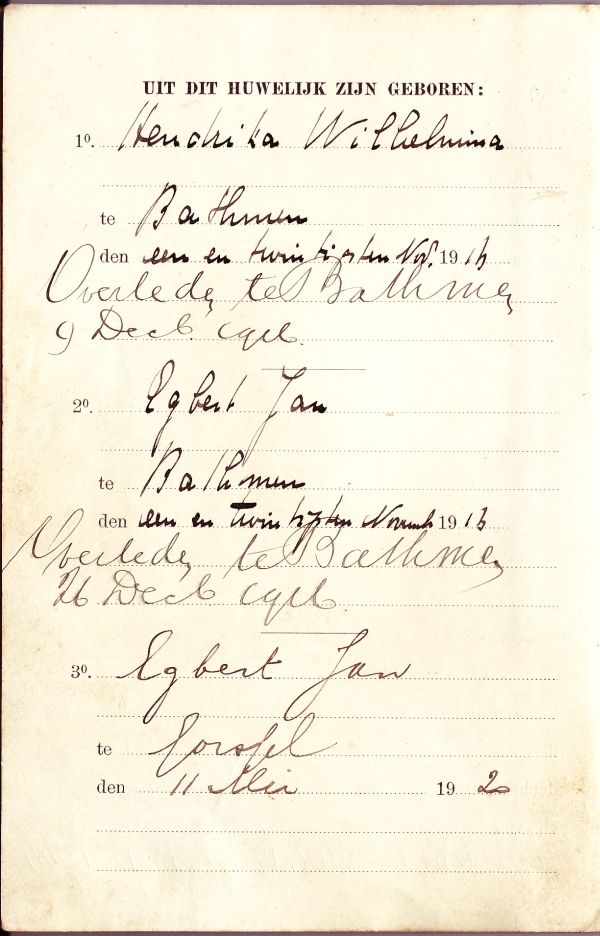 UIT DIT HUWELIJK ZIJN GEBOREN:
1º. Hendrika Wilhelmina
te Bathmen
den een en twintigsten Nov. 19
Overleden te Bathmen
9 Decb.
2º. Egbert Jan
te Bathmen
den een en twintigsten Novemb 19
Overleden te Bathmen
26 Decb.
3º. Egbert Jan
te Gorssel
den 11 Mei 19 2